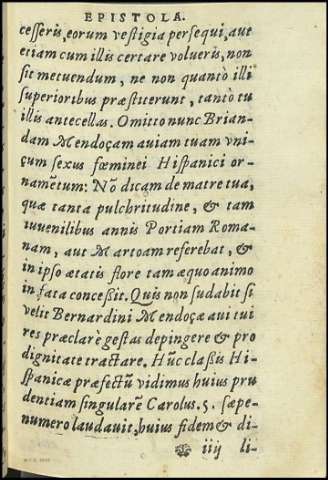 EPISTOLA.
cesseris, eorum vestigia persequi, aut
etiam cum illis certare volueris, non
sit metuendum, ne non quantò illi
superioribus præstiterunt, tantò tu
illis antecellas. Omitto nunc Brian-
dam Mendoçam auiam tuam vni-
çum sexus fœminei Hispanici or-
namẽtum: Nõ dicam de matre tua,
quæ tanta pulchritudine, & tam
iuuenilibus annis Portiam Roma-
nam, aut Martoam referebat, &
in ipso ætatis flore tam æquo animo
in fata conceßit. Quis non sudabit si
velit Bernardini Mendoçæ aui tui
res præclare gestas depingere & pro
dignitate tractare. Hũc claßis Hi-
spanicæ præfectũ vidimus huius pru
dentiam singularẽ Carolus.5. sæpe-
numero laudauit, huius fidem & di-
iiij li-